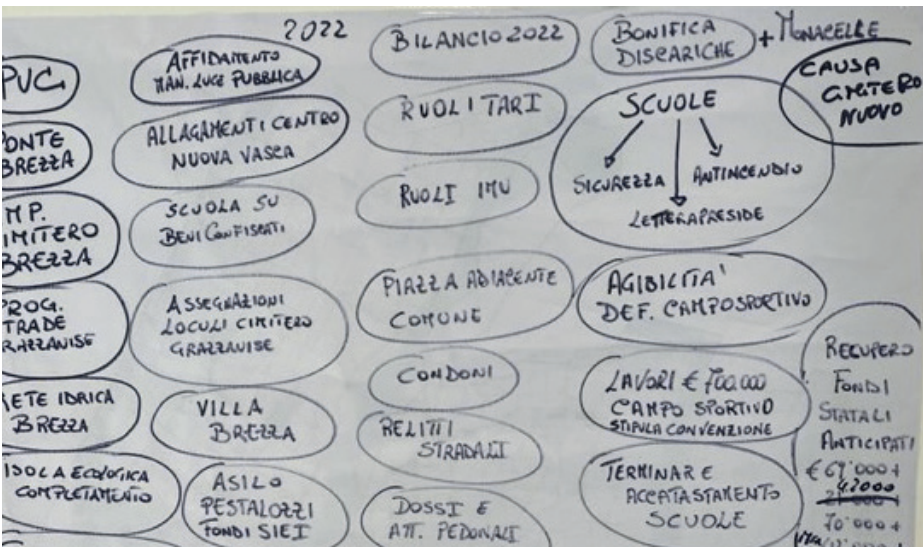 2022
PUC
PONTE
BREZZA
IMP.
CIMITERO
BREZZA
PROG.
STRADE
GRAZZANISE
RETE IDRICA
BREZZA
ISOLA ECOLOGICA
COMPLETAMENTO
AFFIDAMENTO
MAN. LUCE PUBBLICA
ALLAGAMENTI CENTRO
NUOVA VASCA
SCUOLA SU
BENI CONFISCATI
ASSEGNAZIONI
LOCULI CIMITERO
GRAZZANISE
VILLA
BREZZA
ASILO
PESTALOZZI
FONDI SIEI
BILANCIO 2022
RUOLI TARI
RUOLI IMU
PIAZZA ADIACENTE
COMUNE
CONDONI
RELITTI
STRADALI
DOSSI E
ATT. PEDONALI
BONIFICA
DISCARICHE
+ MONACELLE
CAUSA
CIMITERO
NUOVO
SCUOLE
SICUREZZA
ANTINCENDIO
LETTERA PRESIDE
AGIBILITA'
DEF. CAMPO SPORTIVO
LAVORI € 700.000
CAMPO SPORTIVO
STIPULA CONVENZIONE
TERMINARE
ACCATASTAMENTO
SCUOLE
RECUPERO
FONDI
STATALI
ANTICIPATI
€ 69'000 +
42000
70'000 +